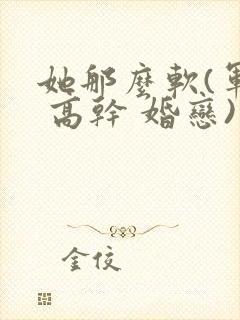 她那麼軟(軍
高幹 婚戀)
金佼